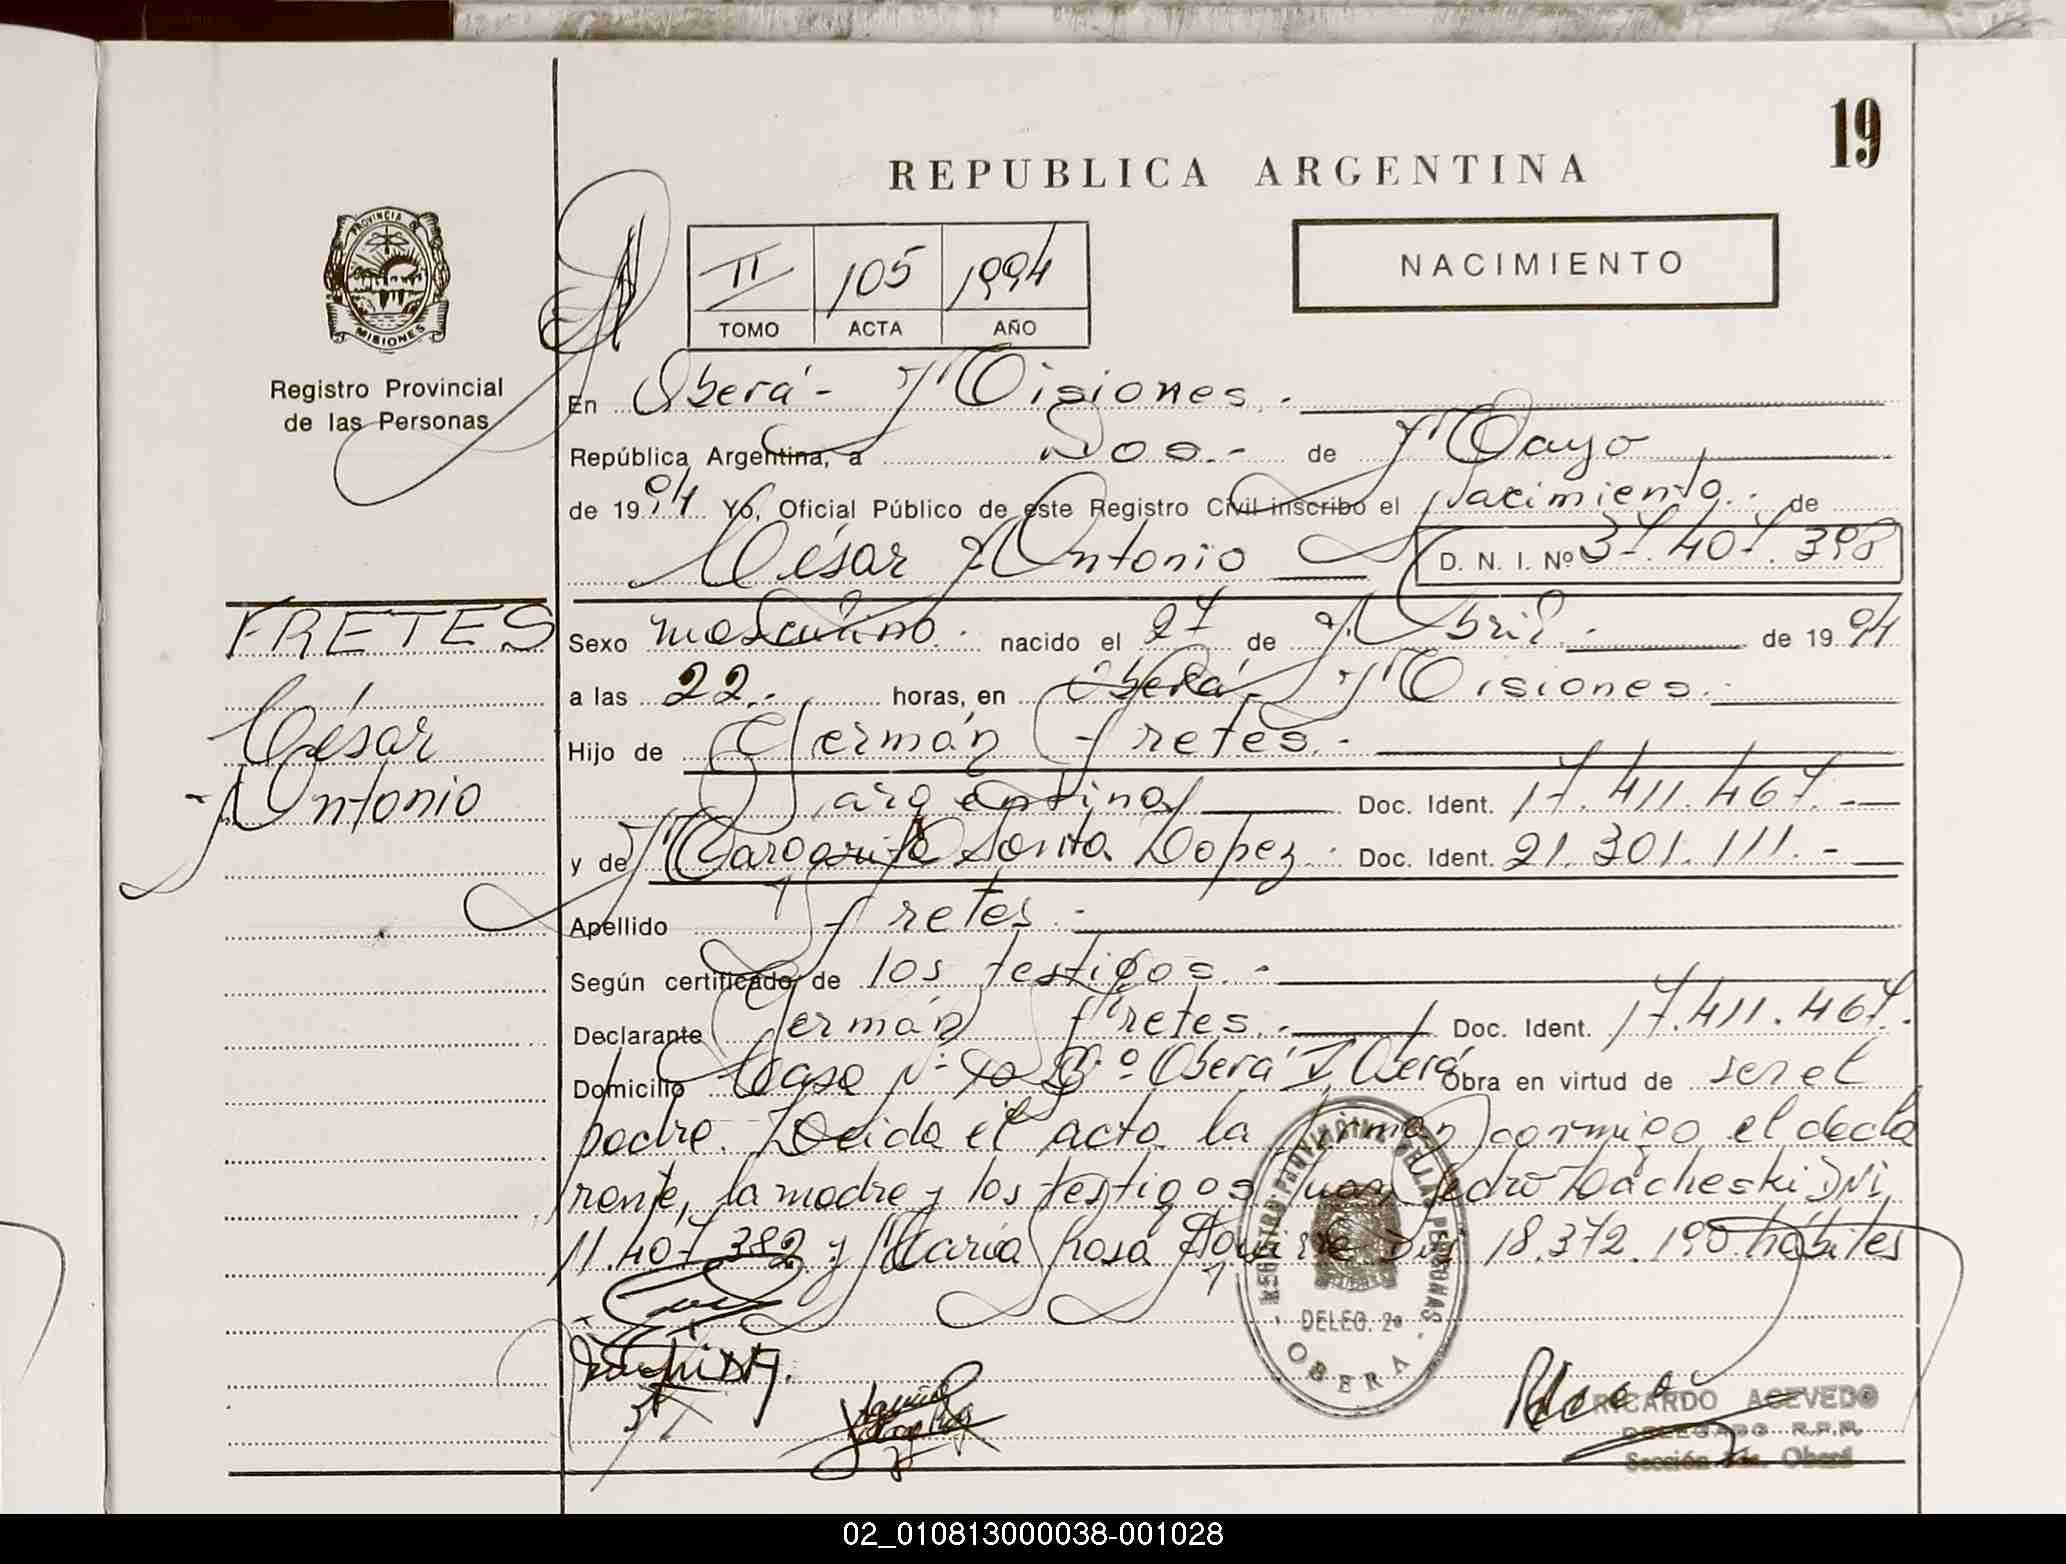 19
REPUBLICA ARGENTINA
PROVINCIA DE MISIONES
NACIMIENTO
II 105 1994
TOMO ACTA AÑO
Registro Provincial
de las Personas
En Oberá - Misiones.-
República Argentina, a Dos.- de Mayo
de 1994 Yo, Oficial Público de este Registro Civil inscribo el Nacimiento. de
César Antonio D. N. I. Nº 37.407.398
FRETES
César
Antonio
Sexo masculino. nacido el 27 de Abril.- de 1994
a las 22.- horas, en Oberá - Misiones.-
Hijo de Germán Fretes.-
argentino Doc. Ident. 17.411.467.-
y de Margarita Sarita Lopez. Doc. Ident. 21.301.111.-
Apellido Fretes.-
Según certificado de los testigos.-
Declarante Germán Fretes.- Doc. Ident. 17.411.467.
Domicilio Casa Nº Bº Oberá I Oberá Obra en virtud de ser el
padre. Leida el acta la firman conmigo el decla
rante, la madre y los testigos Juan Pedro Dacheski DNI,
11.407.382 y María Rosa Aguirre DNI 18.372.190 hábiles
REGISTRO PROVINCIAL DE LAS PERSONAS
DELEG. 2ª
OBERA
RICARDO ACEVEDO
DELEGADO R.P.P.
Sección 2da. Oberá
02_010813000038-001028